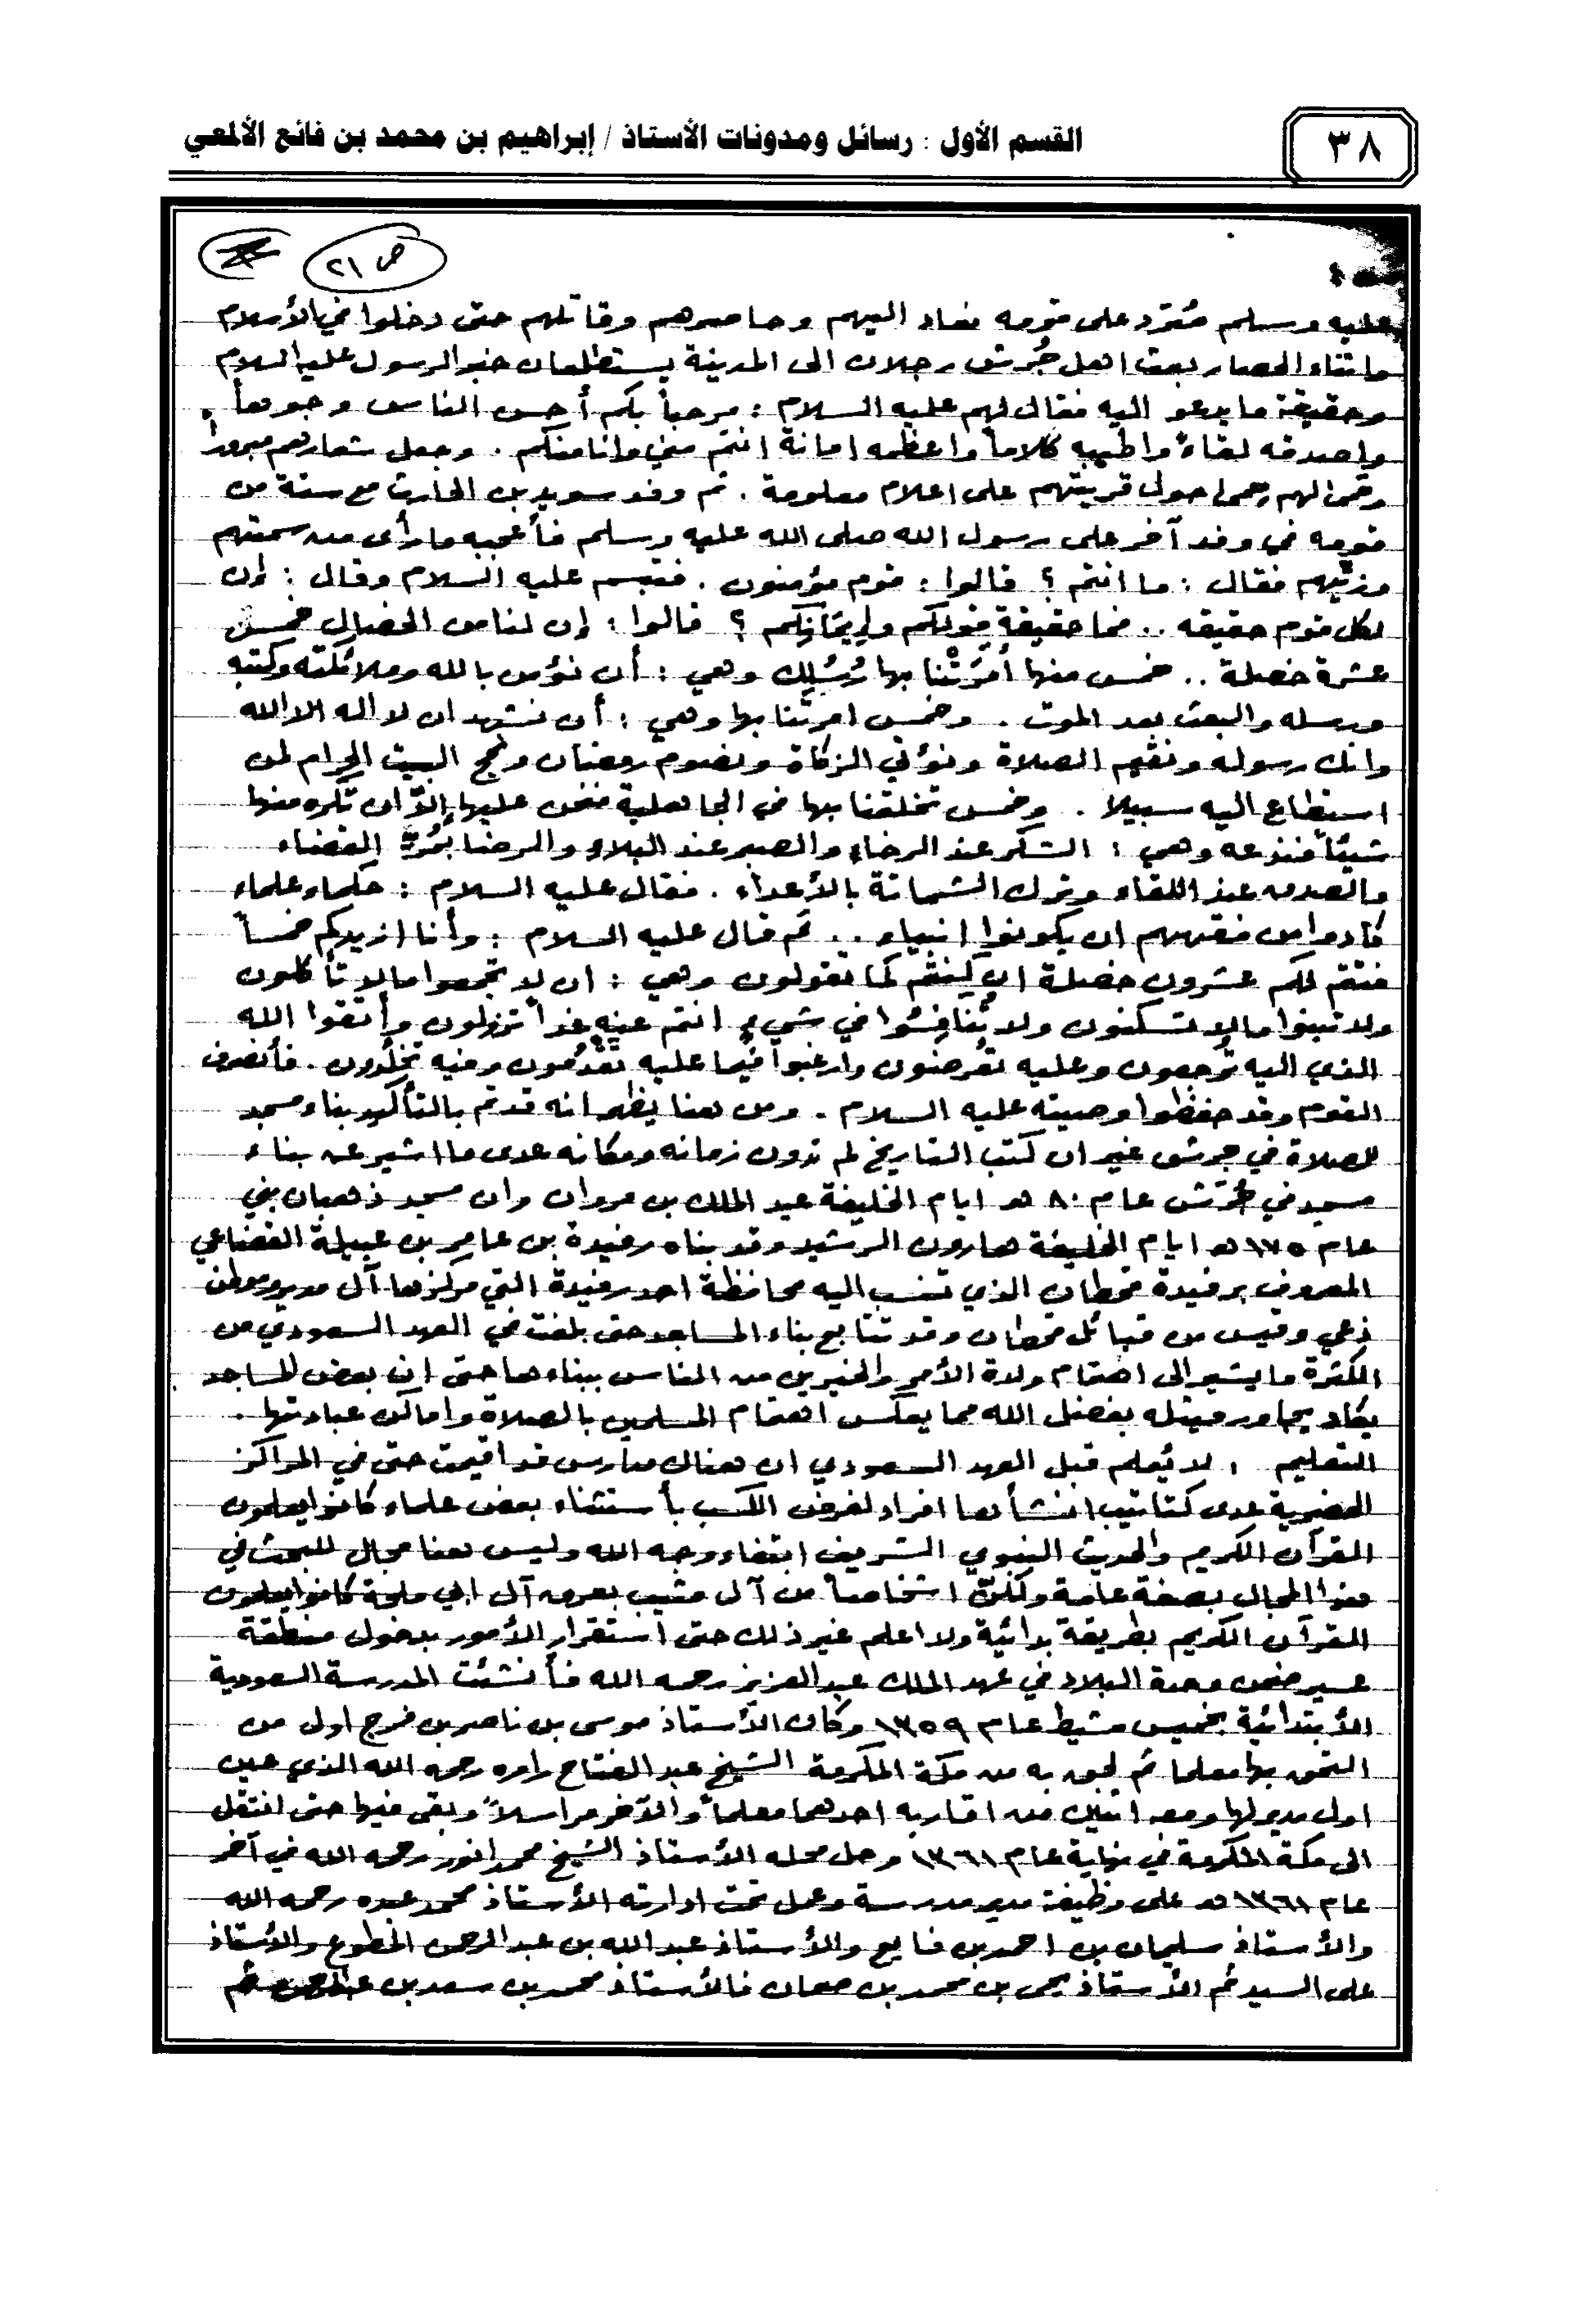 ٣٨
القسم الأول : رسائل ومدونات الأستاذ / إبراهيم بن محمد بن فائع الألمعي
ص ٢١
عليه وسلم على قومه فعاد اليهم وحاصرهم وقاتلهم حتى دخلوا في الأسلام
واثناء الحصار بعث اهل جُرش رجلان الى المدينة يستطلعان خبر الرسول عليه السلام
وحقيقة ما يدعو اليه فقال لهم عليه السلام : مرحباً بكم أحسن الناس وجوهاً .
واصدقه لقاءً واطيبه كلاماً واعظمه امانة انتم مني وانا منكم . وجعل شعارهم مبروراً
وحمى لهم حمى حول قريتهم على اعلام معلومة . ثم وفد سويد بن الحارث مع ستة من
قومه في وفد آخر على رسول الله صلى الله عليه وسلم فأعجبه ما رأى من سمتهم
وزيّهم فقال : ما انتم ؟ قالوا : قوم مؤمنون . فتبسم عليه السلام وقال : إن
لكل قوم حقيقه .. فما حقيقة قولكم وإيمَانِكم ؟ قالوا : إن لنا من الخصال خمس
عشرة خصلة .. خمس منها أمَرَتْنا بها رُسُلِك وهي : أن نؤمن بالله وملائكته وكتبه
ورسله والبعث بعد الموت . وخمس امرتنا بها وهي : أن نشهد ان لا اله الا الله
وانك رسوله ونقيم الصلاة ونؤتي الزكاة ونصوم رمضان ونحج البيت الحرام لمن
استطاع اليه سبيلا . وخمس تخلقنا بها في الجاهلية فنحن عليها إلاّ ان تكره منها
شيئاً فندعه وهي : الشكر عند الرخاء والصبر عند البلاء والرضا بمُرِّ القضاء
والصدق عند اللقاء وترك الشماتة بالأعداء . فقال عليه السلام : حكماء علماء
كادوا من فقههم ان يكونوا انبياء .. ثم قال عليه السلام : وأنا ازيدكم خمساً
فتتم لكم عشرون خصلة ان كنتم كما تقولون وهي : ان لا تجمعوا ما لا تأكلون
ولا تبنوا ما لا تسكنون ولا تُنافِسُوا في شيءٍ انتم عنه غداً تزولون وأتقوا الله
الذي اليه تُرجعون وعليه تُعرضون وارغبوا فيما عليه تَقْدُمون وفيه تخلّدون . فأنصرف
القوم وقد حفظوا وصيته عليه السلام . ومن هنا يظهر انه قد تم بالتأكيد بناء مسجد
للصلاة في جرش غير ان كتب التاريخ لم تدون زمانه ومكانه عدى ما اشير عن بناء
مسجد في جُرَش عام ٨٠ هـ ايام الخليفة عبد الملك بن مروان وان مسجد ذهبان بني
عام ١٧٥ هـ ايام الخليفة هارون الرشيد وقد بناه رفيدة بن عامر بن عبيلة القضاعي
المعروف برفيدة قحطان الذي تنسب اليه محافظة احد رفيدة التي مركزها آل مدير وموطن
وقيس من قبائل قحطان وقد تتابع بناء المساجد حتى بلغت في العهد السعودي من
الكثرة ما يشير الى اهتمام ولاة الأمر والخيرين من الناس ببناءها حتى ان بعض المساجد
يكاد يجاور مثله بفضل الله مما يعكس اهتمام المسلمين بالصلاة واماكن عبادتها .
التعليم : لا يُعلم قبل العهد السعودي ان هناك مدارس قد اقيمت حتى في المراكز
الحضرية عدى كتاتيب انشأها افراد لغرض الكسب بأستثناء بعض علماء كانوا يعلمون
القرآن الكريم والحديث النبوي الشريف ابتغاء وجه الله وليس هنا مجال للبحث في
هذا المجال بصفة عامة ولكنّ اشخاصاً من آل مشيب بعرق آل ابي ملحة كانوا يعلمون
القرآن الكريم بطريقة بدائية ولا اعلم غير ذلك حتى استقرار الأمور بدخول منطقة
عسير ضمن وحدة البلاد في عهد الملك عبدالعزيز رحمه الله فأنشئت المدرسة السعودية
الأبتدائية بخميس مشيط عام ١٣٥٩ وكان الأستاذ موسى بن ناصر بن فرج اول من
التحق بها معلما ثم لحق به من مكة المكرمة الشيخ عبد الفتاح راوه رحمه الله الذي عين
اول مدير لها ومعه اثنين من اقاربه احدهما معلماً والآخر مراسلاً وبقى فيها حتى انتقل
الى مكة المكرمة في نهاية عام ١٣٦١ وحل محله الأستاذ الشيخ محمد انور رحمه الله في آخر
عام ١٣٦١ هـ على وظيفة مدير مدرسة وعمل تحت ادارته الأستاذ محمد عبده رحمه الله
والأستاذ سليمان بن احمد بن فايع والأستاذ عبد الله بن عبد الرحمن المطوع والأستاذ
على السيد ثم الأستاذ يحى بن محمد بن صمان فالأستاذ محمد بن سعد بن ثم